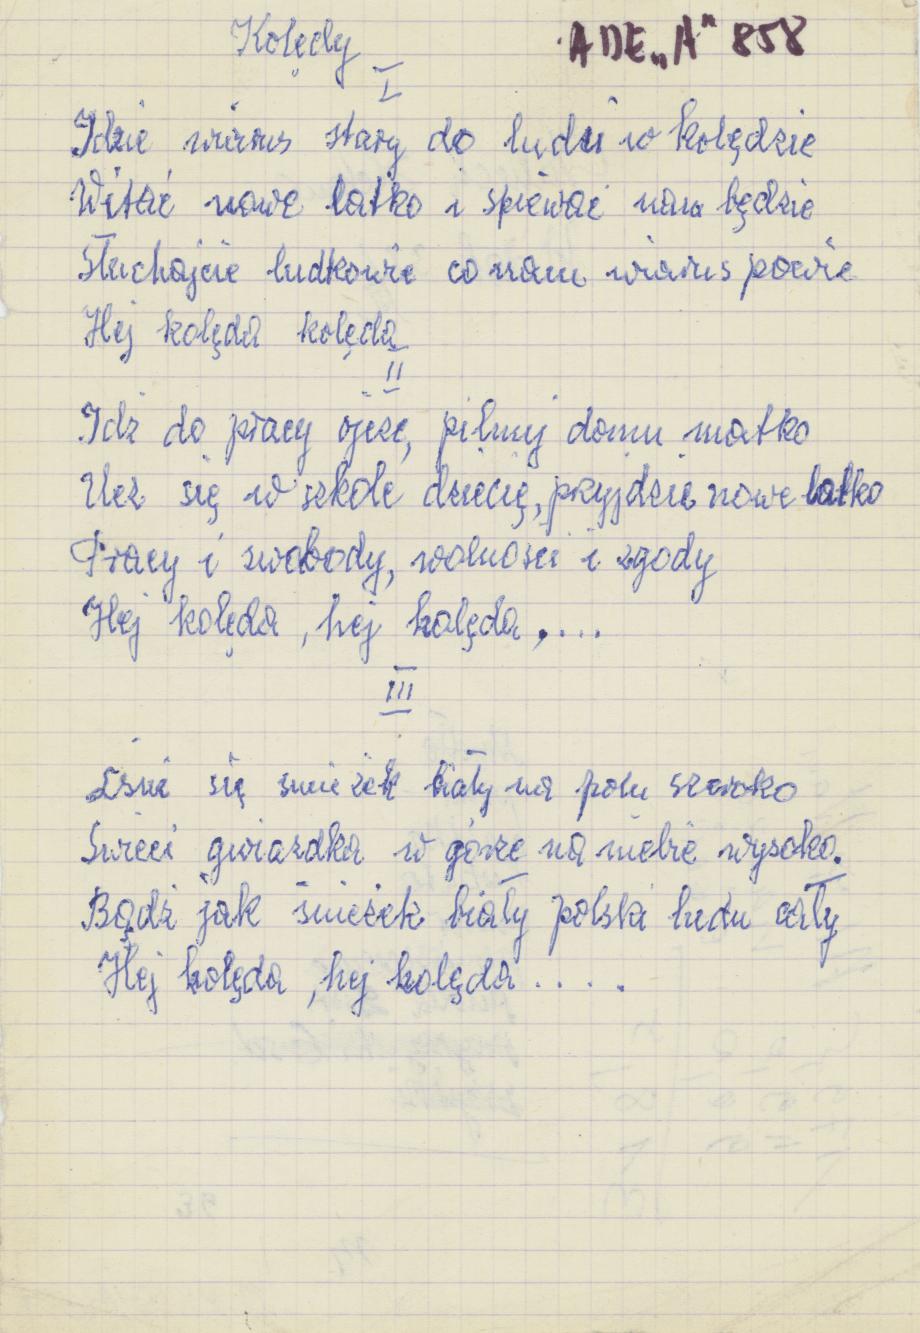 Kolędy
ADE„A" 858
I
Idzie wiarus stary do ludzi w kolędzie
Witać nowe latko i śpiewać nam będzie
Słuchajcie ludkowie co nam wiarus powie
Hej kolęda kolęda
II
Idź do pracy ojcze, pilnuj domu matko
Ucz się w szkole dziecię, przyjdzie nowe latko
Pracy i swobody, wolności i zgody
Hej kolęda, hej kolęda,....
III
Lśni się śnieżek biały na polu szeroko
Świeci gwiazdka w górze na niebie wysoko.
Bądź jak śnieżek biały polski ludu cały
Hej kolęda, hej kolęda.....